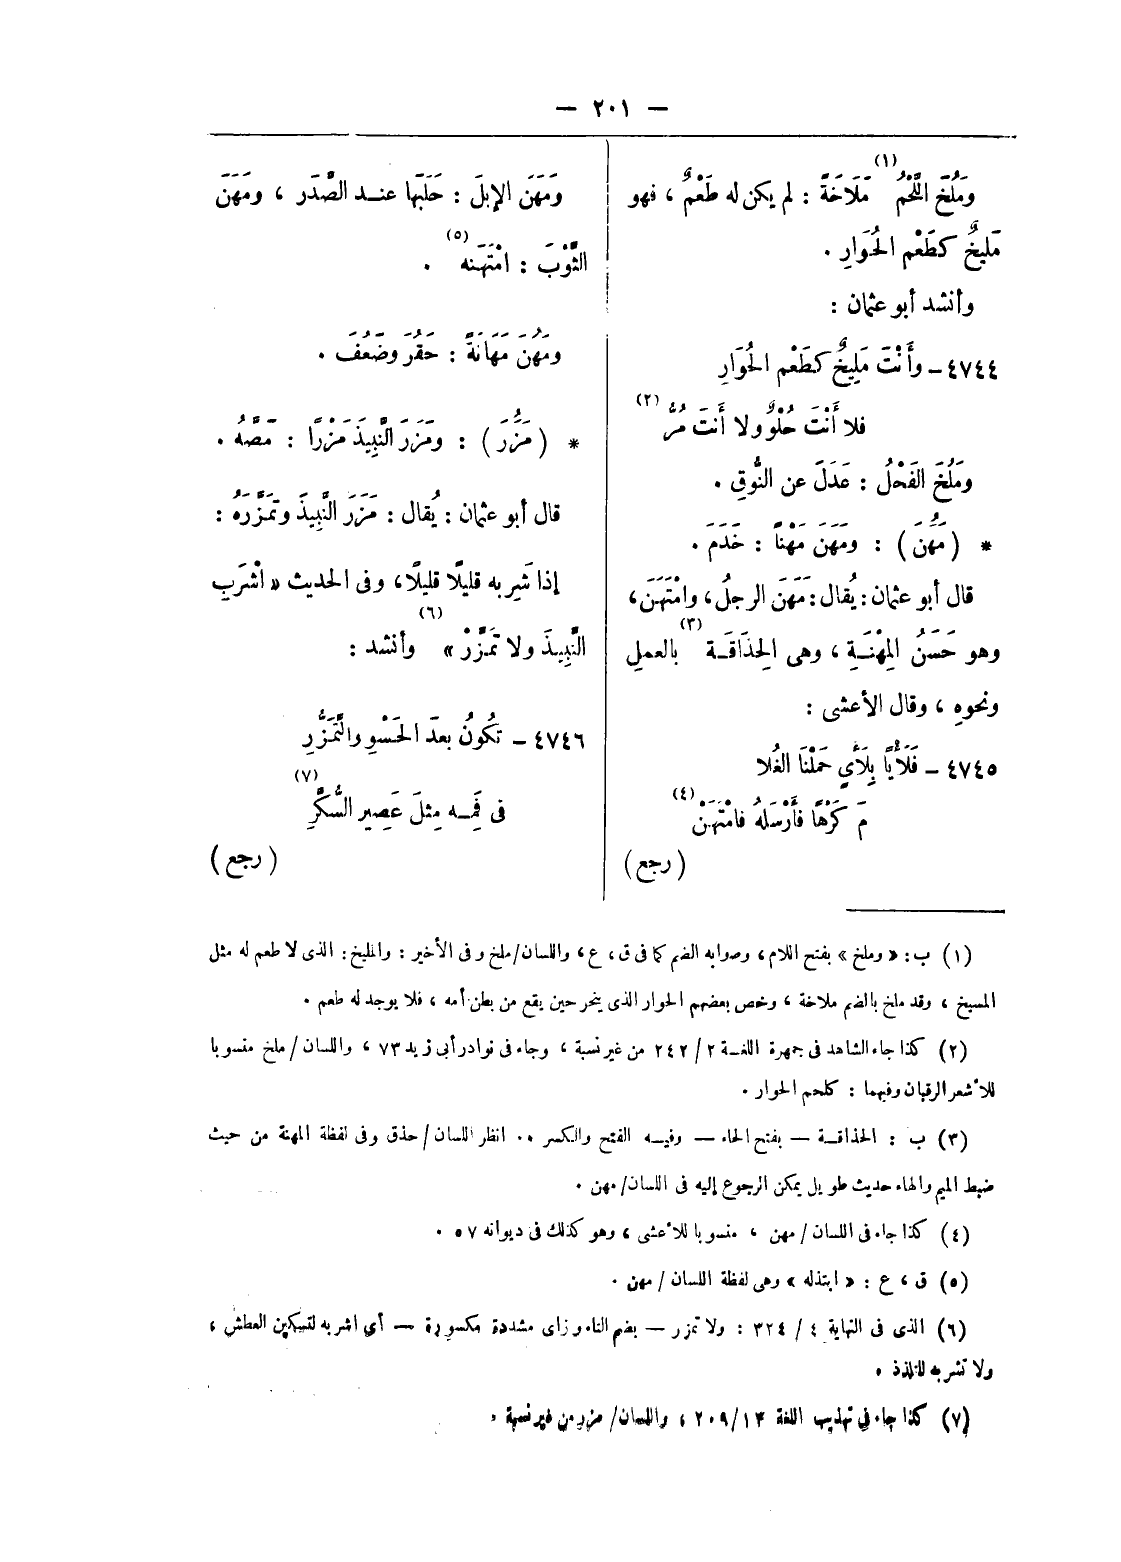 — ٢٠١ —
وَمَلُخَ اللَّحْمُ (١) مَلَاخَةً : لم يكن له طَعْمٌ ، فهو
مَليخٌ كطَعْم الحُوَارِ .
وأنشد أبو عثمان :
٤٧٤٤ – وأَنْتَ مَلِيخٌ كطَعْم الحُوَارِ
فلا أَنْتَ حُلْوٌ ولا أَنتَ مُرُّ (٢)
ومَلُخَ الفَحْلُ : عَدَلَ عن النُّوقِ .
* ( مَهُنَ ) : ومَهَنَ مَهْنًا : خَدَمَ .
قال أبو عثمان : يُقال : مَهَنَ الرجلُ ، وامْتَهَنَ ،
وهو حَسَنُ المِهْنَةِ ، وهى الحِذَاقَة (٣) بالعملِ
ونحوِه ، وقال الأعشى :
٤٧٤٥ – فَلَأْيًا بِلَأْيٍ حَمَلْنَا الغُلا
مَ كَرْهًا فأَرْسَلَهُ فامْتَهَنْ (٤)
( رجع )
ومَهَنَ الإبلَ : حَلَبَها عند الصَّدَر ، ومَهَن
الثَّوْبَ : امْتَهَنه (٥) .
ومَهُنَ مَهَانَةً : حَقُرَ وضَعُفَ .
* ( مَزُرَ ) : ومَزَرَ النَّبِيذَ مَزْرًا : مَصَّهُ .
قال أبو عثمان : يُقال : مَزَرَ النَّبِيذَ وتَمَزَّرَهُ :
إذا شَرِبه قليلًا قليلًا ، وفى الحديث « اشْرَبِ
النَّبِيذَ ولا تَمَزَّرْ » (٦) وأنشد :
٤٧٤٦ – تَكُونُ بعدَ الحَسْوِ والتَّمَزُّرِ
فى فَمِه مِثلَ عَصِيرِ السُّكَّرِ (٧)
( رجع )
(١) ب : « وملخ » بفتح اللام ، وصوابه الضم كما فى ق ، ع ، واللسان/ملخ وفى الأخير : والمليخ : الذى لا طعم له مثل
المسيخ ، وقد ملخ بالضم ملاخة ، وخص بعضهم الحوار الذى ينحر حين يقع من بطن أمه ، فلا يوجد له طعم .
(٢) كذا جاء الشاهد فى جمهرة اللغة ٢ / ٢٤٢ من غير نسبة ، وجاء فى نوادر أبى زيد ٧٣ ، واللسان / ملخ منسوبا
للأشعر الرقبان وفيهما : كلحم الحوار .
(٣) ب : الحذاقة — بفتح الحاء — وفيه الفتح والكسر .. انظر اللسان / حذق وفى لفظة المهنة من حيث
ضبط الميم والهاء حديث طويل يمكن الرجوع إليه فى اللسان/ مهن .
(٤) كذا جاء فى اللسان / مهن ، منسوبا للأعشى ، وهو كذلك فى ديوانه ٥٧ .
(٥) ق ، ع : « ابتذله » وهى لفظة اللسان / مهن .
(٦) الذى فى النهاية ٤ / ٣٢٤ : ولا تمزر — بضم التاء وزاى مشددة مكسورة — أى اشربه لتسكين العطش ،
ولا تشربه للتلذذ .
(٧) كذا جاء فى تهذيب اللغة ١٣ / ٢٠٩ ، واللسان/ مزر من غير نسبة .